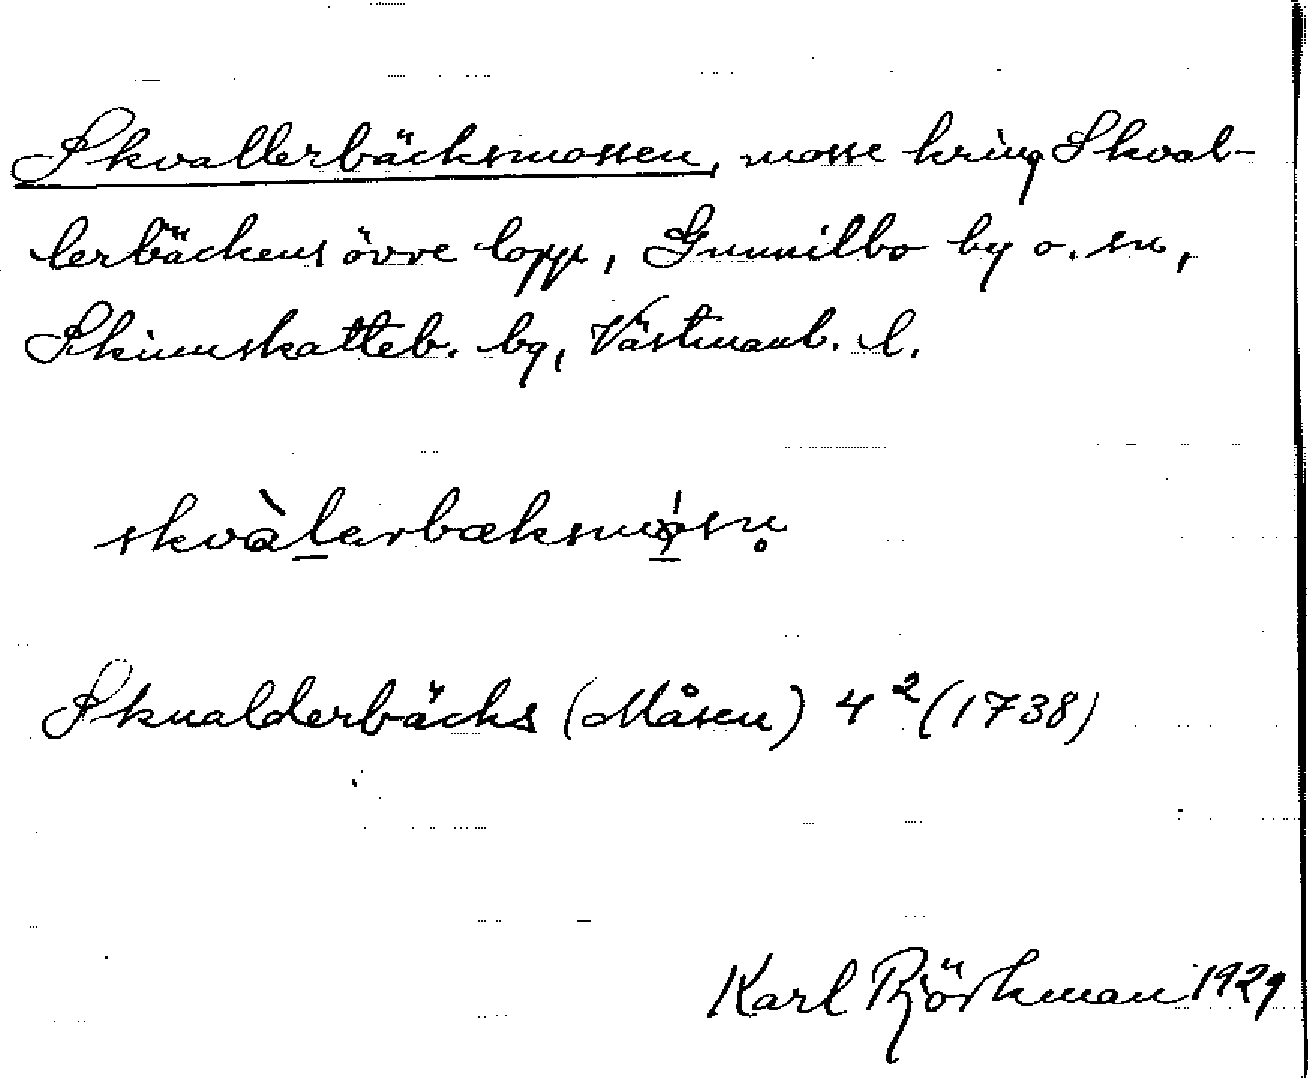 Skvallerbäcksmossen, mosse kring Skval-
lerbäckens övre lopp, Gunnilbo by o. sn,
Skinnskatteb. bg, Västmanl. l.
skvàlerbæksmósn̥
Skualderbäcks (Måsen) 4² (1738)
Karl Björkman 1929